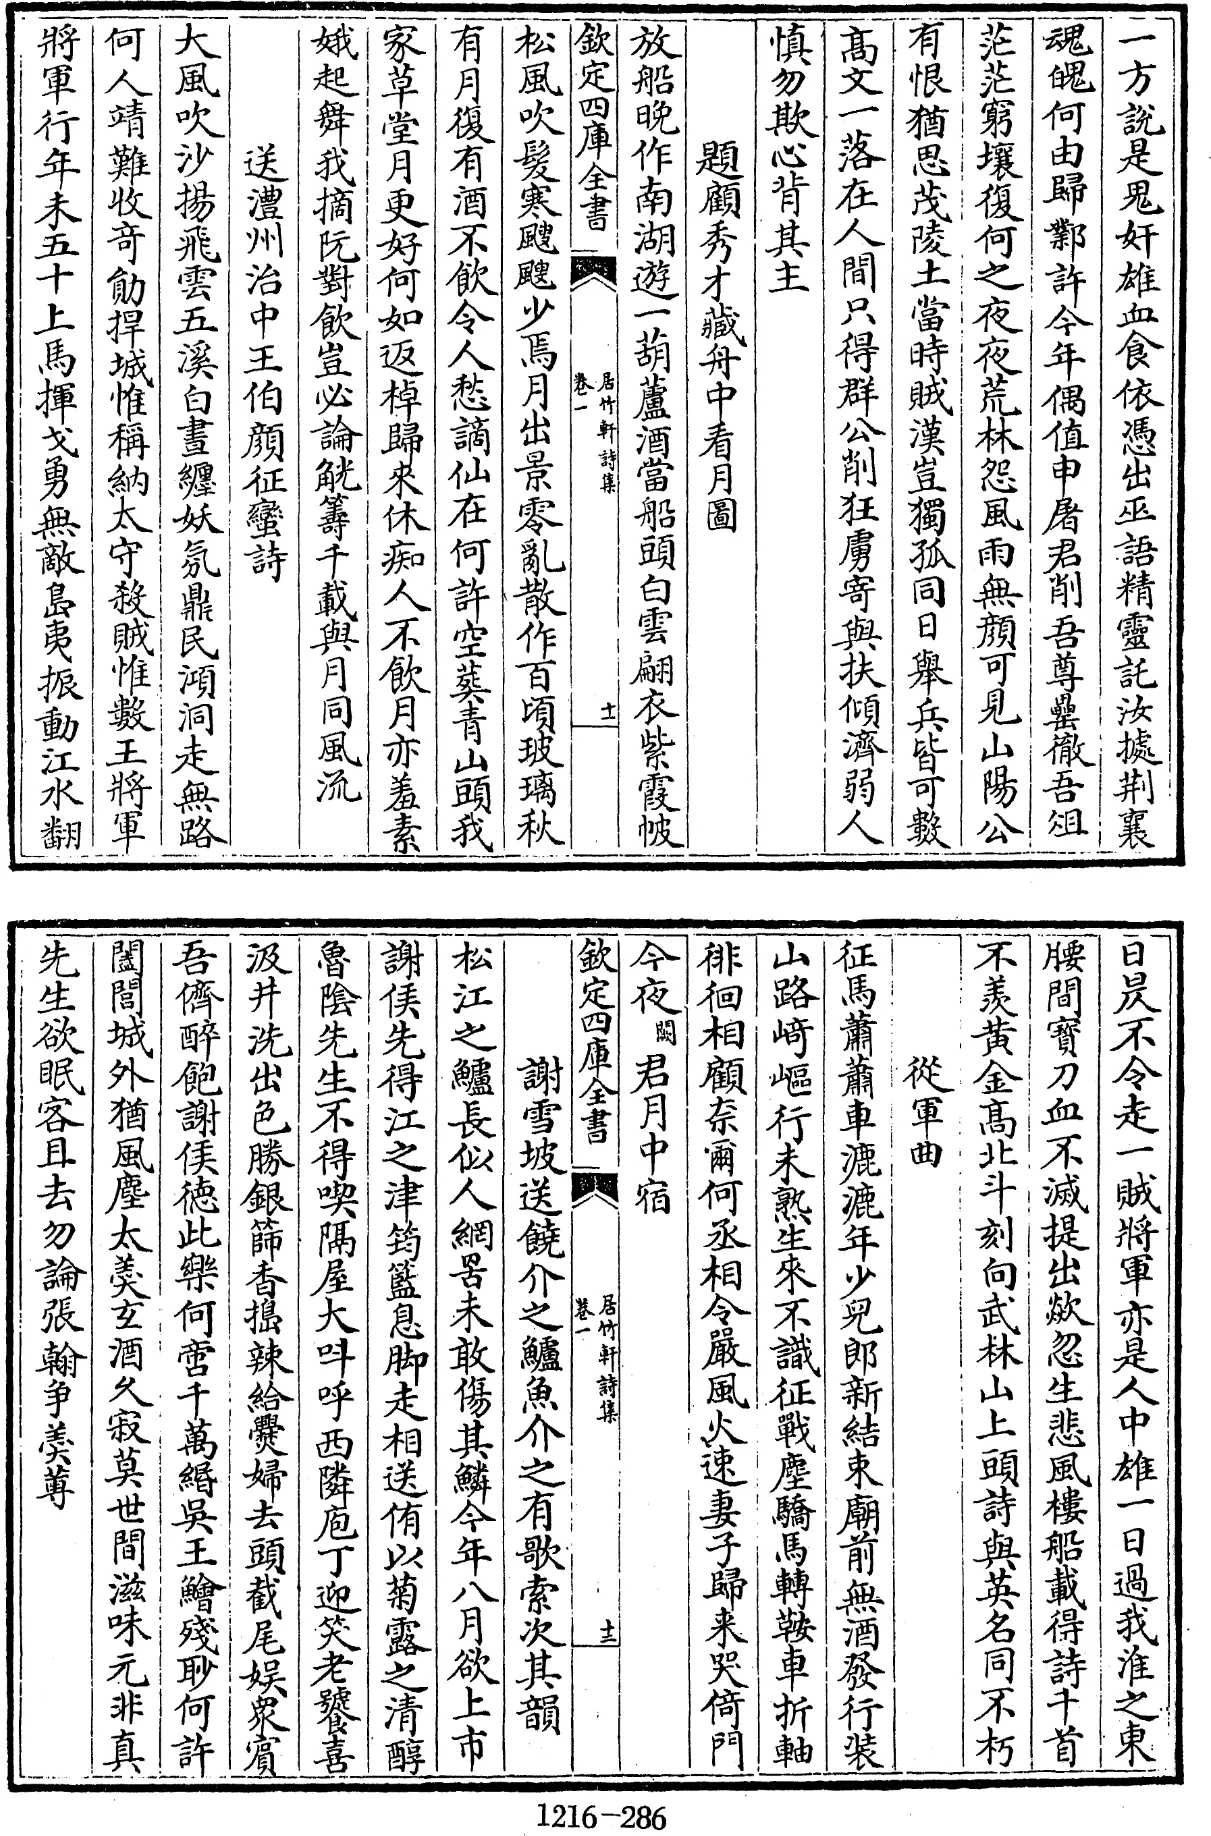 一方說是鬼奸雄血食依憑出巫語精靈託汝㩀荆襄
魂魄何由歸鄴許今年偶值申屠君削吾尊罍徹吾俎
茫茫窮壤復何之夜夜荒林怨風雨無顔可見山陽公
有恨猶思茂陵土當時賊漢豈獨孤同日舉兵皆可數
髙文一落在人間只得群公削狂虜寄與扶傾濟弱人
慎勿欺心背其主
題顧秀才藏舟中看月圖
放船晚作南湖遊一葫蘆酒當船頭白雲翩衣紫霞帔
欽定四庫全書
居竹軒詩集
卷一
十一
松風吹髮寒颼颼少焉月出景零亂散作百頃玻璃秋
有月復有酒不飲令人愁謫仙在何許空葬青山頭我
家草堂月更好何如返棹歸來休痴人不飲月亦羞素
娥起舞我摘阮對飲豈必論觥籌千載與月同風流
送澧州治中王伯顔征蠻詩
大風吹沙揚飛雲五溪白晝纏妖氛鼎民澒洞走無路
何人靖難收竒勛捍城惟稱納太守殺賊惟數王將軍
將軍行年未五十上馬揮戈勇無敵島夷振動江水翻
日昃不令走一賊將軍亦是人中雄一日過我淮之東
腰間寳刀血不滅提出歘忽生悲風樓船載得詩千首
不羨黄金髙北斗刻向武林山上頭詩與英名同不朽
從軍曲
征馬蕭蕭車漉漉年少兒郎新結束廟前無酒發行装
山路﨑嶇行未熟生來不識征戰塵驕馬轉鞍車折軸
徘徊相顧奈爾何丞相令嚴風火速妻子歸来哭倚門
今夜闕君月中宿
欽定四庫全書
居竹軒詩集
卷一
十二
謝雪坡送饒介之鱸魚介之有歌索次其韻
松江之鱸長似人網罟未敢傷其鱗今年八月欲上市
謝侯先得江之津筠籃息脚走相送侑以菊露之清醇
魯隂先生不得喫隔屋大呌呼西隣庖丁迎笑老饕喜
汲井洗出色勝銀篩香擣辣給㸑婦去頭截尾娱衆賔
吾儕醉飽謝侯徳此樂何啻千萬緡吳王鱠殘耶何許
闔閭城外猶風塵太羮玄酒久寂莫世間滋味元非真
先生欲眠客且去勿論張翰爭羮蓴
1216-286